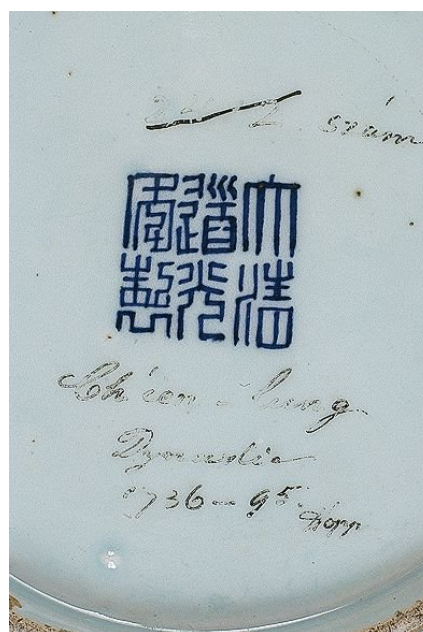 szám
大清
道光
年製
Ch'ien-lung
Dynastie
1736-95. Hopp